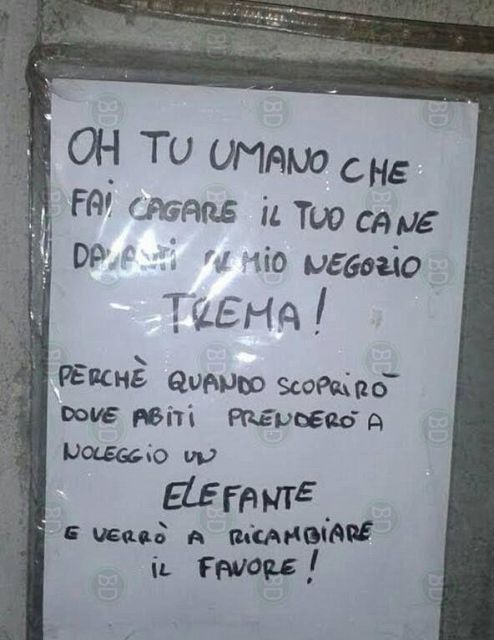 OH TU UMANO CHE
FAI CAGARE IL TUO CANE
DAVANTI AL MIO NEGOZIO
TREMA!
PERCHÈ QUANDO SCOPRIRÒ
DOVE ABITI PRENDERÒ A
NOLEGGIO UN
ELEFANTE
E VERRÒ A RICAMBIARE
IL FAVORE!